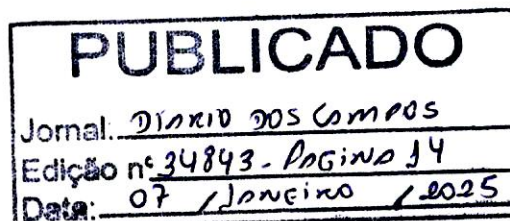 PUBLICADO
Jornal: DIARIO DOS CAMPOS
Edição nº 34843 - PAGINA 14
Data: 07 / JANEIRO / 2025